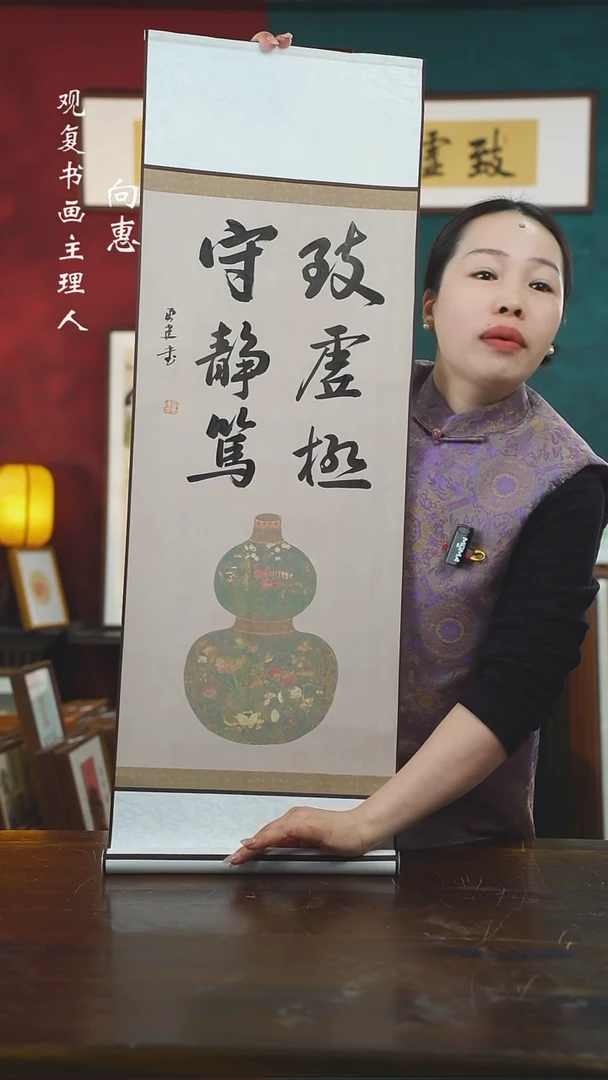 观复书画主理人
向惠
致虚极
守静篤
致虚